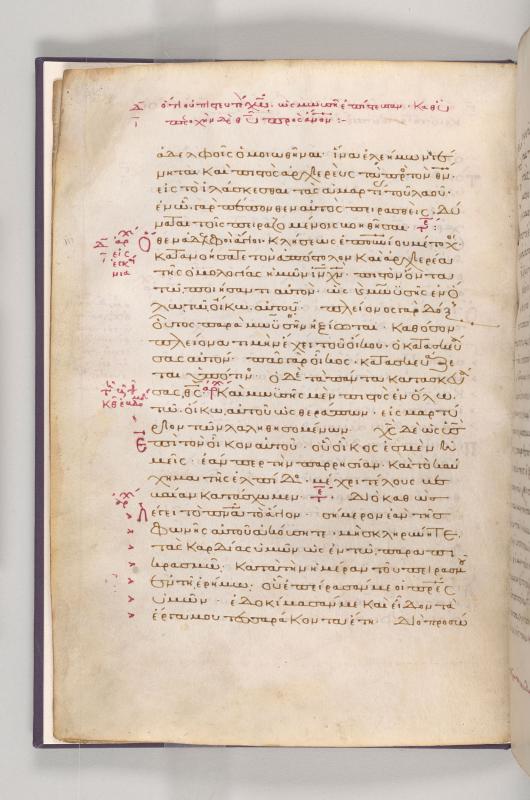 ἀδελφοῖς ὁμοιωθῆναι· ἵνα ἐλεήμων γέ
νηται καὶ πιστὸς ἀρχιερεὺς τὰ πρὸς τὸν θν·
εἰς τὸ ἱλάσκεσθαι τὰς ἁμαρτίας τοῦ λαοῦ·
ἐν ᾧ γὰρ πέπονθεν αὐτὸς πειρασθεὶς· δύ
ναται τοῖς πειραζομένοις βοηθῆσαι
Ὅθεν ἀδελφοὶ ἅγιοι· κλήσεως ἐπουρανίου μέτοχοι·
κατανοήσατε τὸν ἀπόστολον καὶ ἀρχιερέα
τῆς ὁμολογίας ἡμῶν ιν χν· πιστὸν ὄντα
τῷ ποιήσαντι αὐτὸν· ὡς καὶ μωϋσῆς ἐν ὅ
λῳ τῷ οἴκῳ αὐτοῦ· πλείονος γὰρ δόξης
οὗτος παρὰ μωϋσῆν ἠξίωται· καθόσον
πλείονα τιμὴν ἔχει τοῦ οἴκου· ὁ κατασκευά
σας αὐτόν· πᾶς γὰρ οἶκος· κατασκευάζε
ται ὑπό τινος· ὁ δὲ τὰ πάντα κατασκευά
σας θς· καὶ μωϋσῆς μὲν πιστὸς ἐν ὅλῳ
τῷ οἴκῳ αὐτοῦ ὡς θεράπων· εἰς μαρτύ
ριον τῶν λαληθησομένων· χς δὲ ὡς υς
ἐπὶ τὸν οἶκον αὐτοῦ· οὗ οἶκός ἐσμεν ἡ
μεῖς· ἐάν περ τὴν παρρησίαν καὶ τὸ καύ
χημα τῆς ἐλπίδος· μέχρι τέλους βε
βαίαν κατάσχωμεν· Διὸ καθὼς
λέγει τὸ πνα τὸ ἅγιον· σήμερον ἐὰν τῆς
φωνῆς αὐτοῦ ἀκούσητε· μὴ σκληρύνητε
τὰς καρδίας ὑμῶν ὡς ἐν τῷ παραπι
κρασμῷ· κατὰ τὴν ἡμέραν τοῦ πειρασμοῦ
ἐν τῇ ἐρήμῳ· οὗ ἐπείρασάν με οἱ πρες
ὑμῶν· ἐδοκίμασάν με καὶ εἶδον τὰ
ἔργα μου τεσσαράκοντα ἔτη· Διὸ προσώ